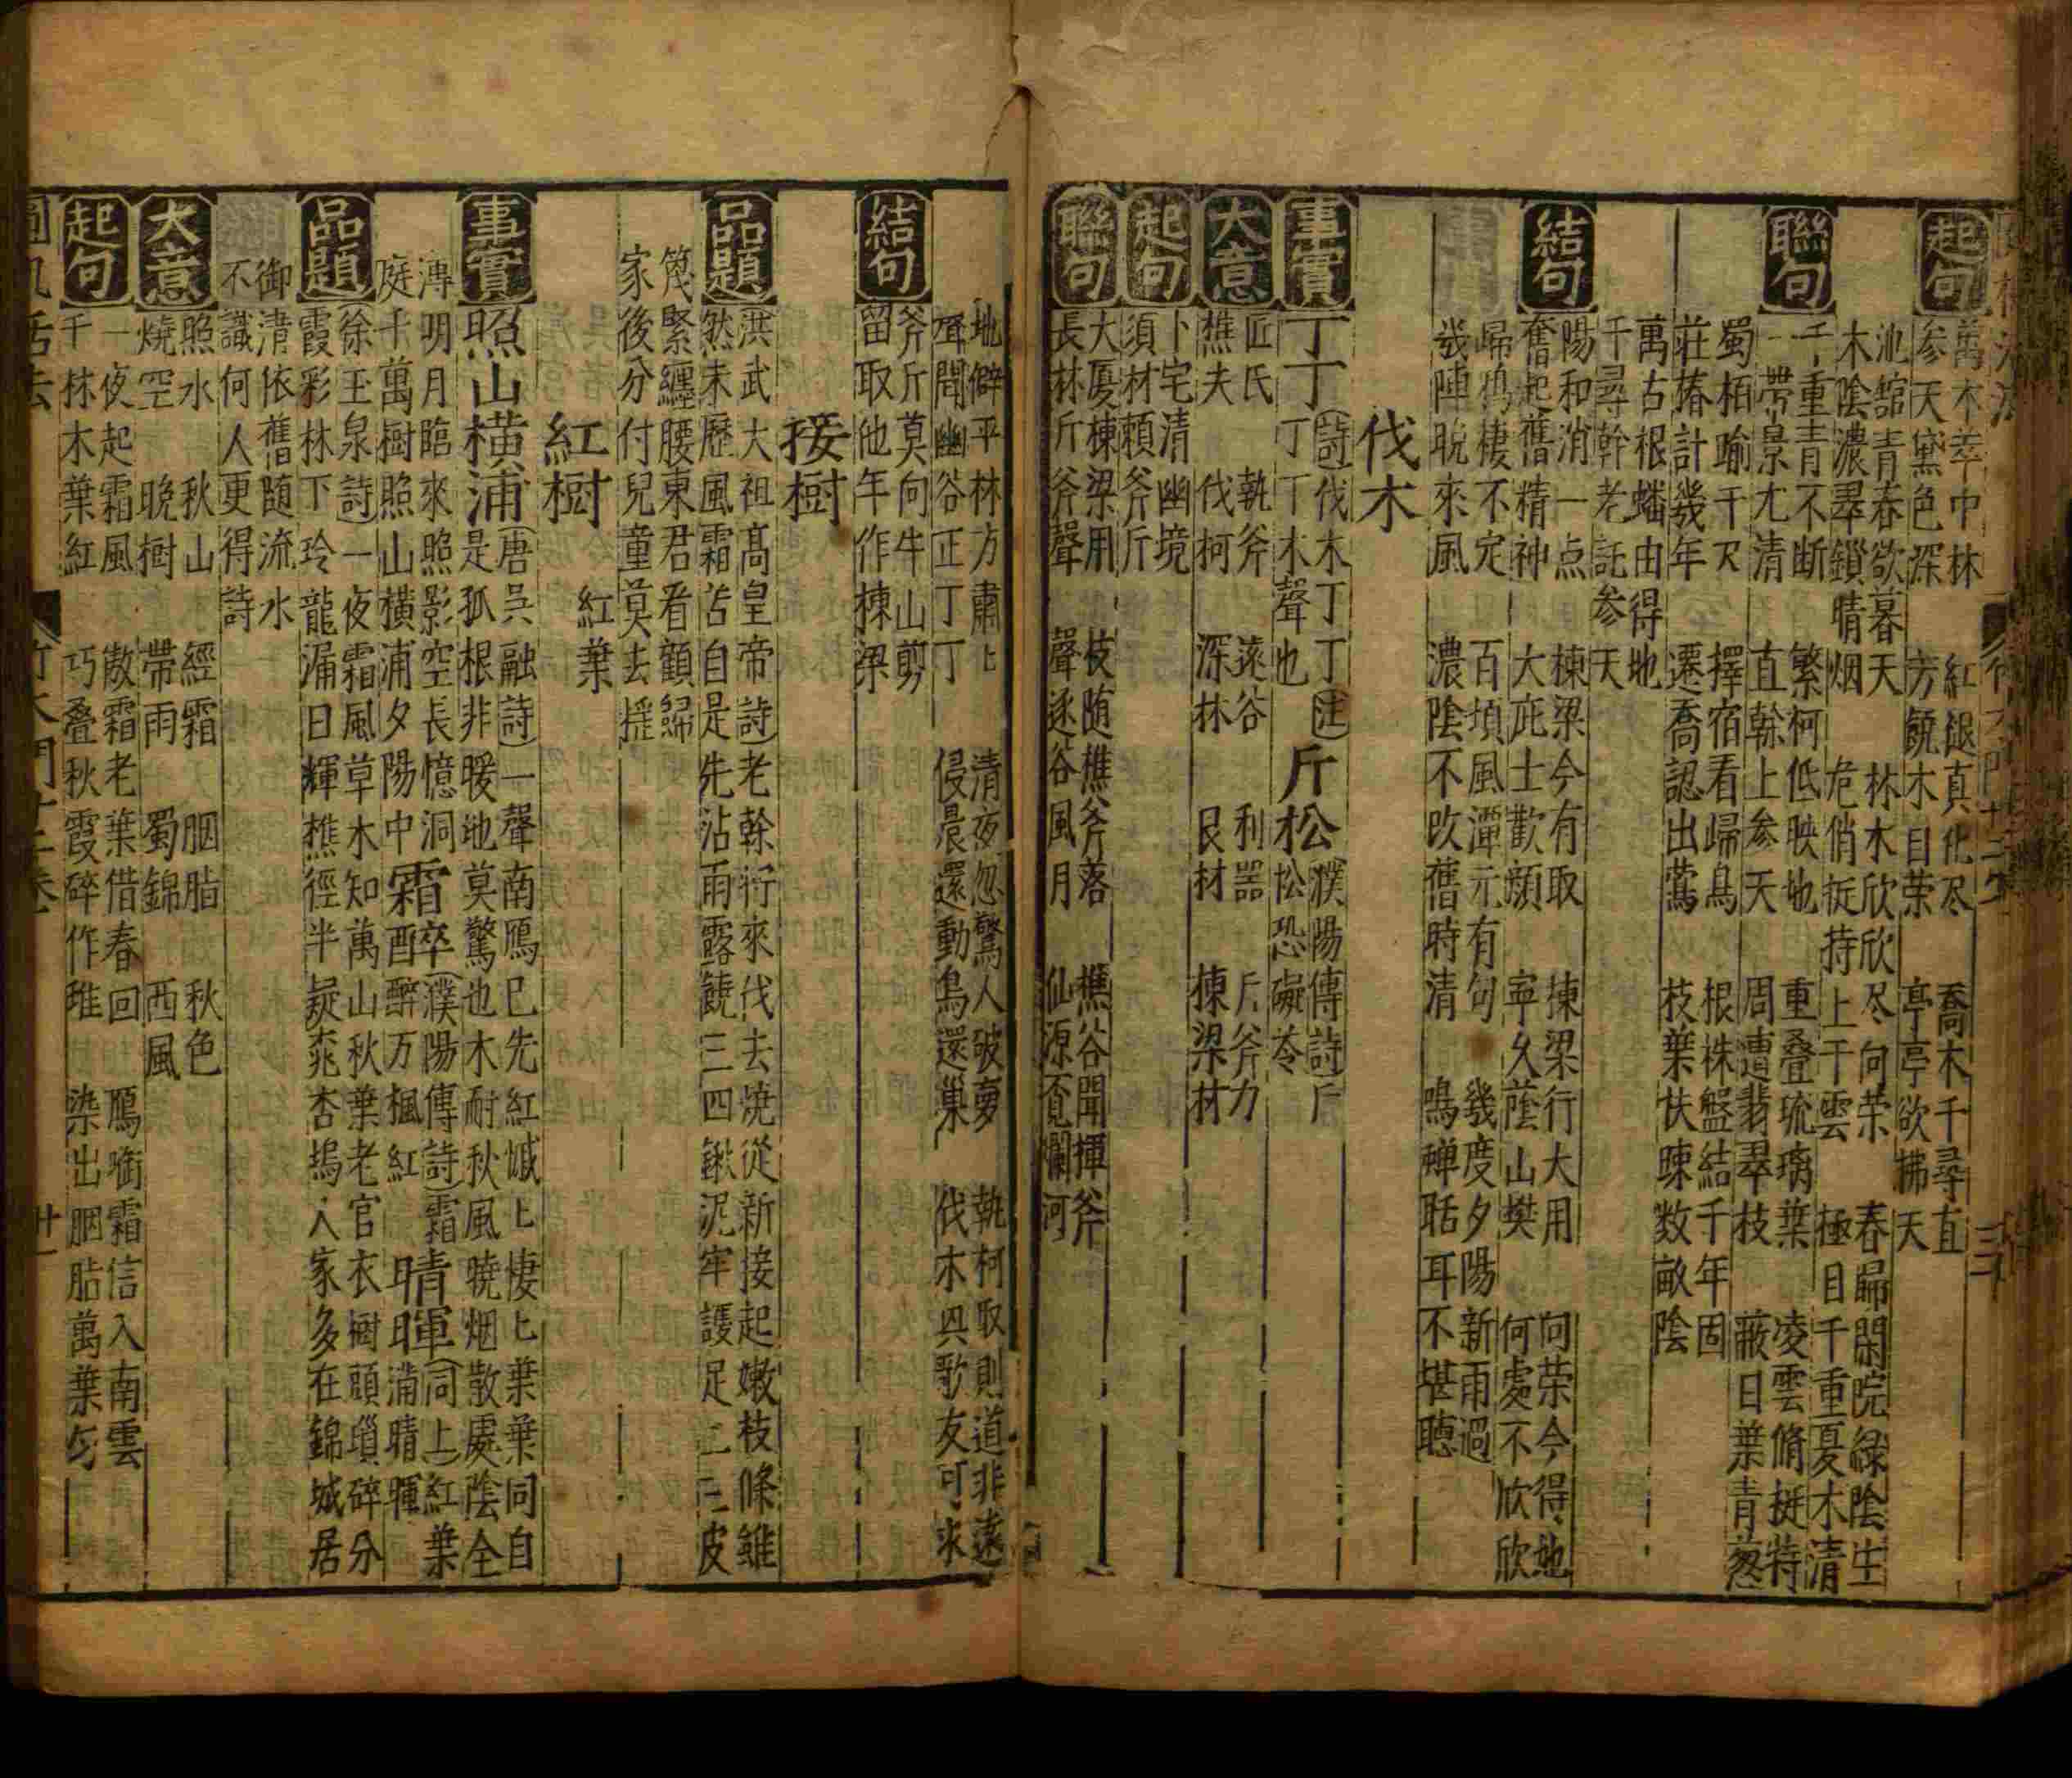 起句 萬木萃中林 紅退真化尽 喬木千尋直
参天黛色深 芳饒木自荣 亭亭欲拂天
池舘青春欲暮天 林木欣欣尽向荣 春歸閑院緑陰生
木陰濃翠鎖晴烟 危俏挺持上干雲 極目千重夏木清
聯句 千重青不断 繁柯低映地 重叠琉璃葉 凌雲脩挺特
一帶景尤清 直幹上参天 周遭翡翠枝 蔽日葉青葱
蜀栢喻千尺 擇宿看歸鳥 根株盤結千年固
莊椿計幾年 遷喬認出鶯 枝葉扶踈数畝陰
萬古根蟠由得地
千尋幹老託参天
結句 陽和消一点 棟梁今有取 棟梁行大用 向荣今得地
奮起舊精神 大庇士歡顔 寧久蔭山樊 何處不欣欣
歸鴉棲不定 百頃風潭元有句 幾度夕陽新雨過
幾陣晩來風 濃陰不改舊時清 鳴蟬聒耳不堪聽
伐木
事實 丁丁 詩伐木丁丁註丁丁木聲也 斤松 濮陽傳詩斤松松恐礙苓
大意 匠氏 執斧 遠谷 利器 斤斧力
樵夫 伐柯 深林 良材 棟梁材
起句 卜宅清幽境
須材頼斧斤
聯句 大厦棟梁用 枝随樵斧落 樵谷聞揮斧
長林斤斧聲 聲逐谷風月 仙源覔爛柯
地僻平林方肅匕 清夜忽驚人破夢 執柯取則道非遠
聲聞幽谷正丁丁 侵晨還動鳥還巢 伐木興歌友可求
結句 斧斤莫向牛山剪
留取他年作棟梁
接樹
品題 洪武大祖髙皇帝詩老幹斫來伐去焼從新接起嫩枝條雖
然未歷風霜苦自是先沾雨露饒三四鍬泥牢護足二三皮
篾緊纏腰東君看顧歸
家後分付兒童莫去揺
紅樹 紅葉
事實 照山橫浦 唐吳融詩一聲南鴈已先紅慽匕棲匕葉葉同自
是孤根非暖地莫驚也木耐秋風曉烟散處陰全
溥明月臨來照影空長憶洞
庭千萬樹照山橫浦夕陽中 霜酔 濮陽傳詩霜酣醉万楓紅 晴暉 同上紅葉滿晴暉
品題 徐玉泉詩一夜霜風草木知萬山秋葉老官衣樹頭瑣碎分
霞彩林下玲龍漏日輝樵徑半疑桃杏塢人家多在錦城居
御溝依舊随流水
不識何人更得詩
大意 照水 秋山 經霜 胭脂 秋色
燒空 晩樹 帶雨 蜀錦 西風
起句 一夜起霜風 敖霜老葉借春回 鴈啣霜信入南雲
千林木葉紅 巧叠秋霞碎作堆 染出胭脂萬葉勻
竹木門十二卷 廿一